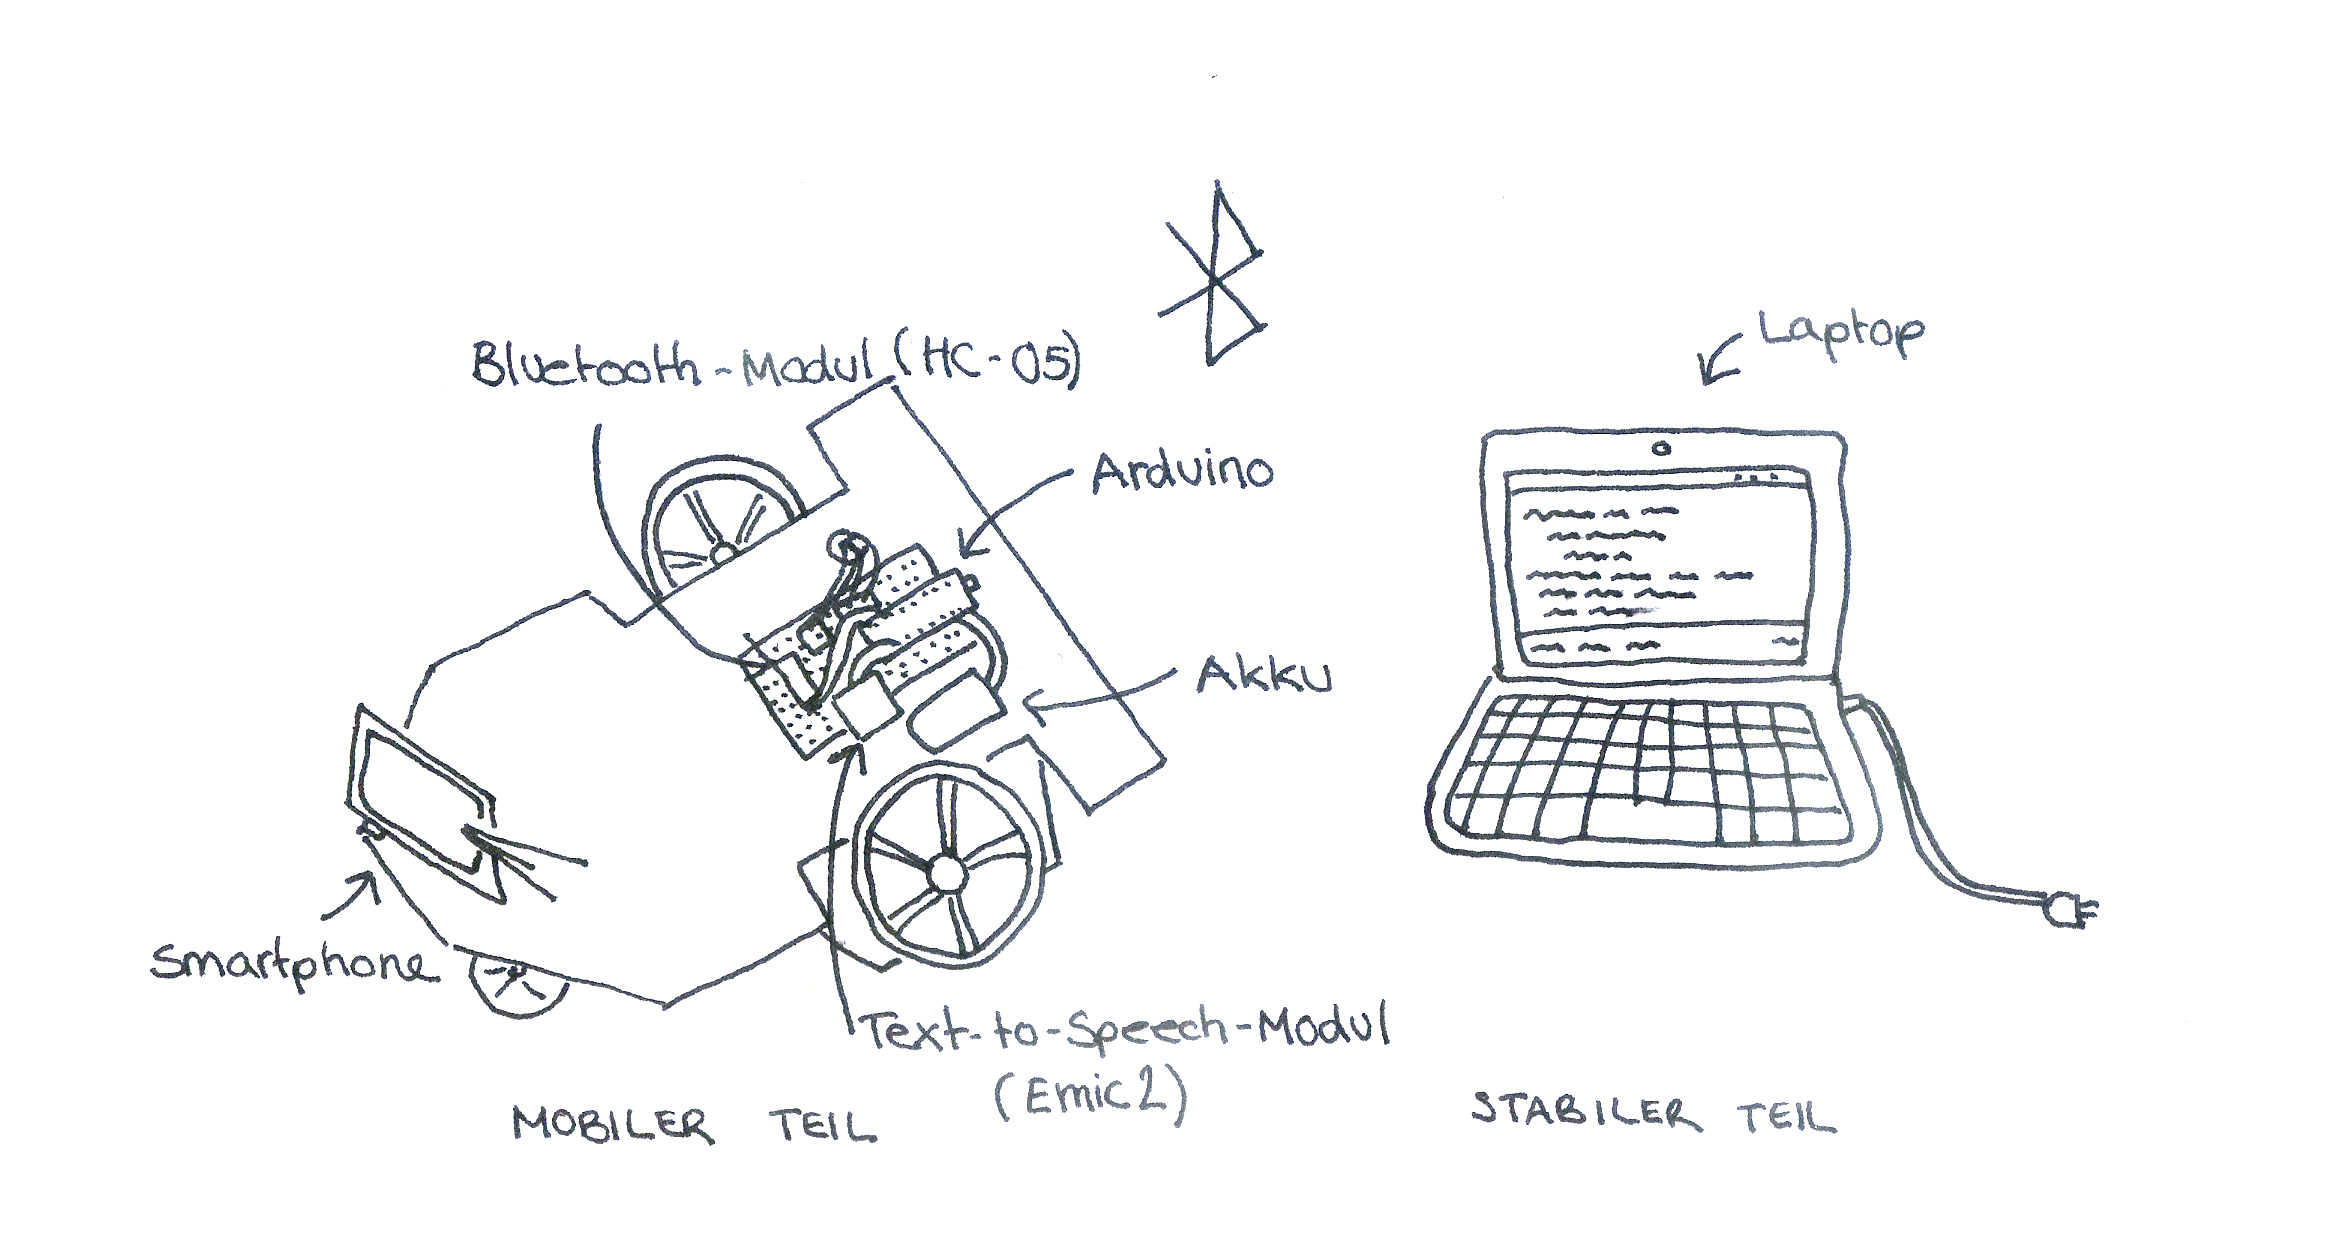 Laptop
Bluetooth-Modul (HC-05)
Arduino
Akku
Smartphone
Text-to-Speech-Modul
(Emic2)
MOBILER TEIL
STABILER TEIL